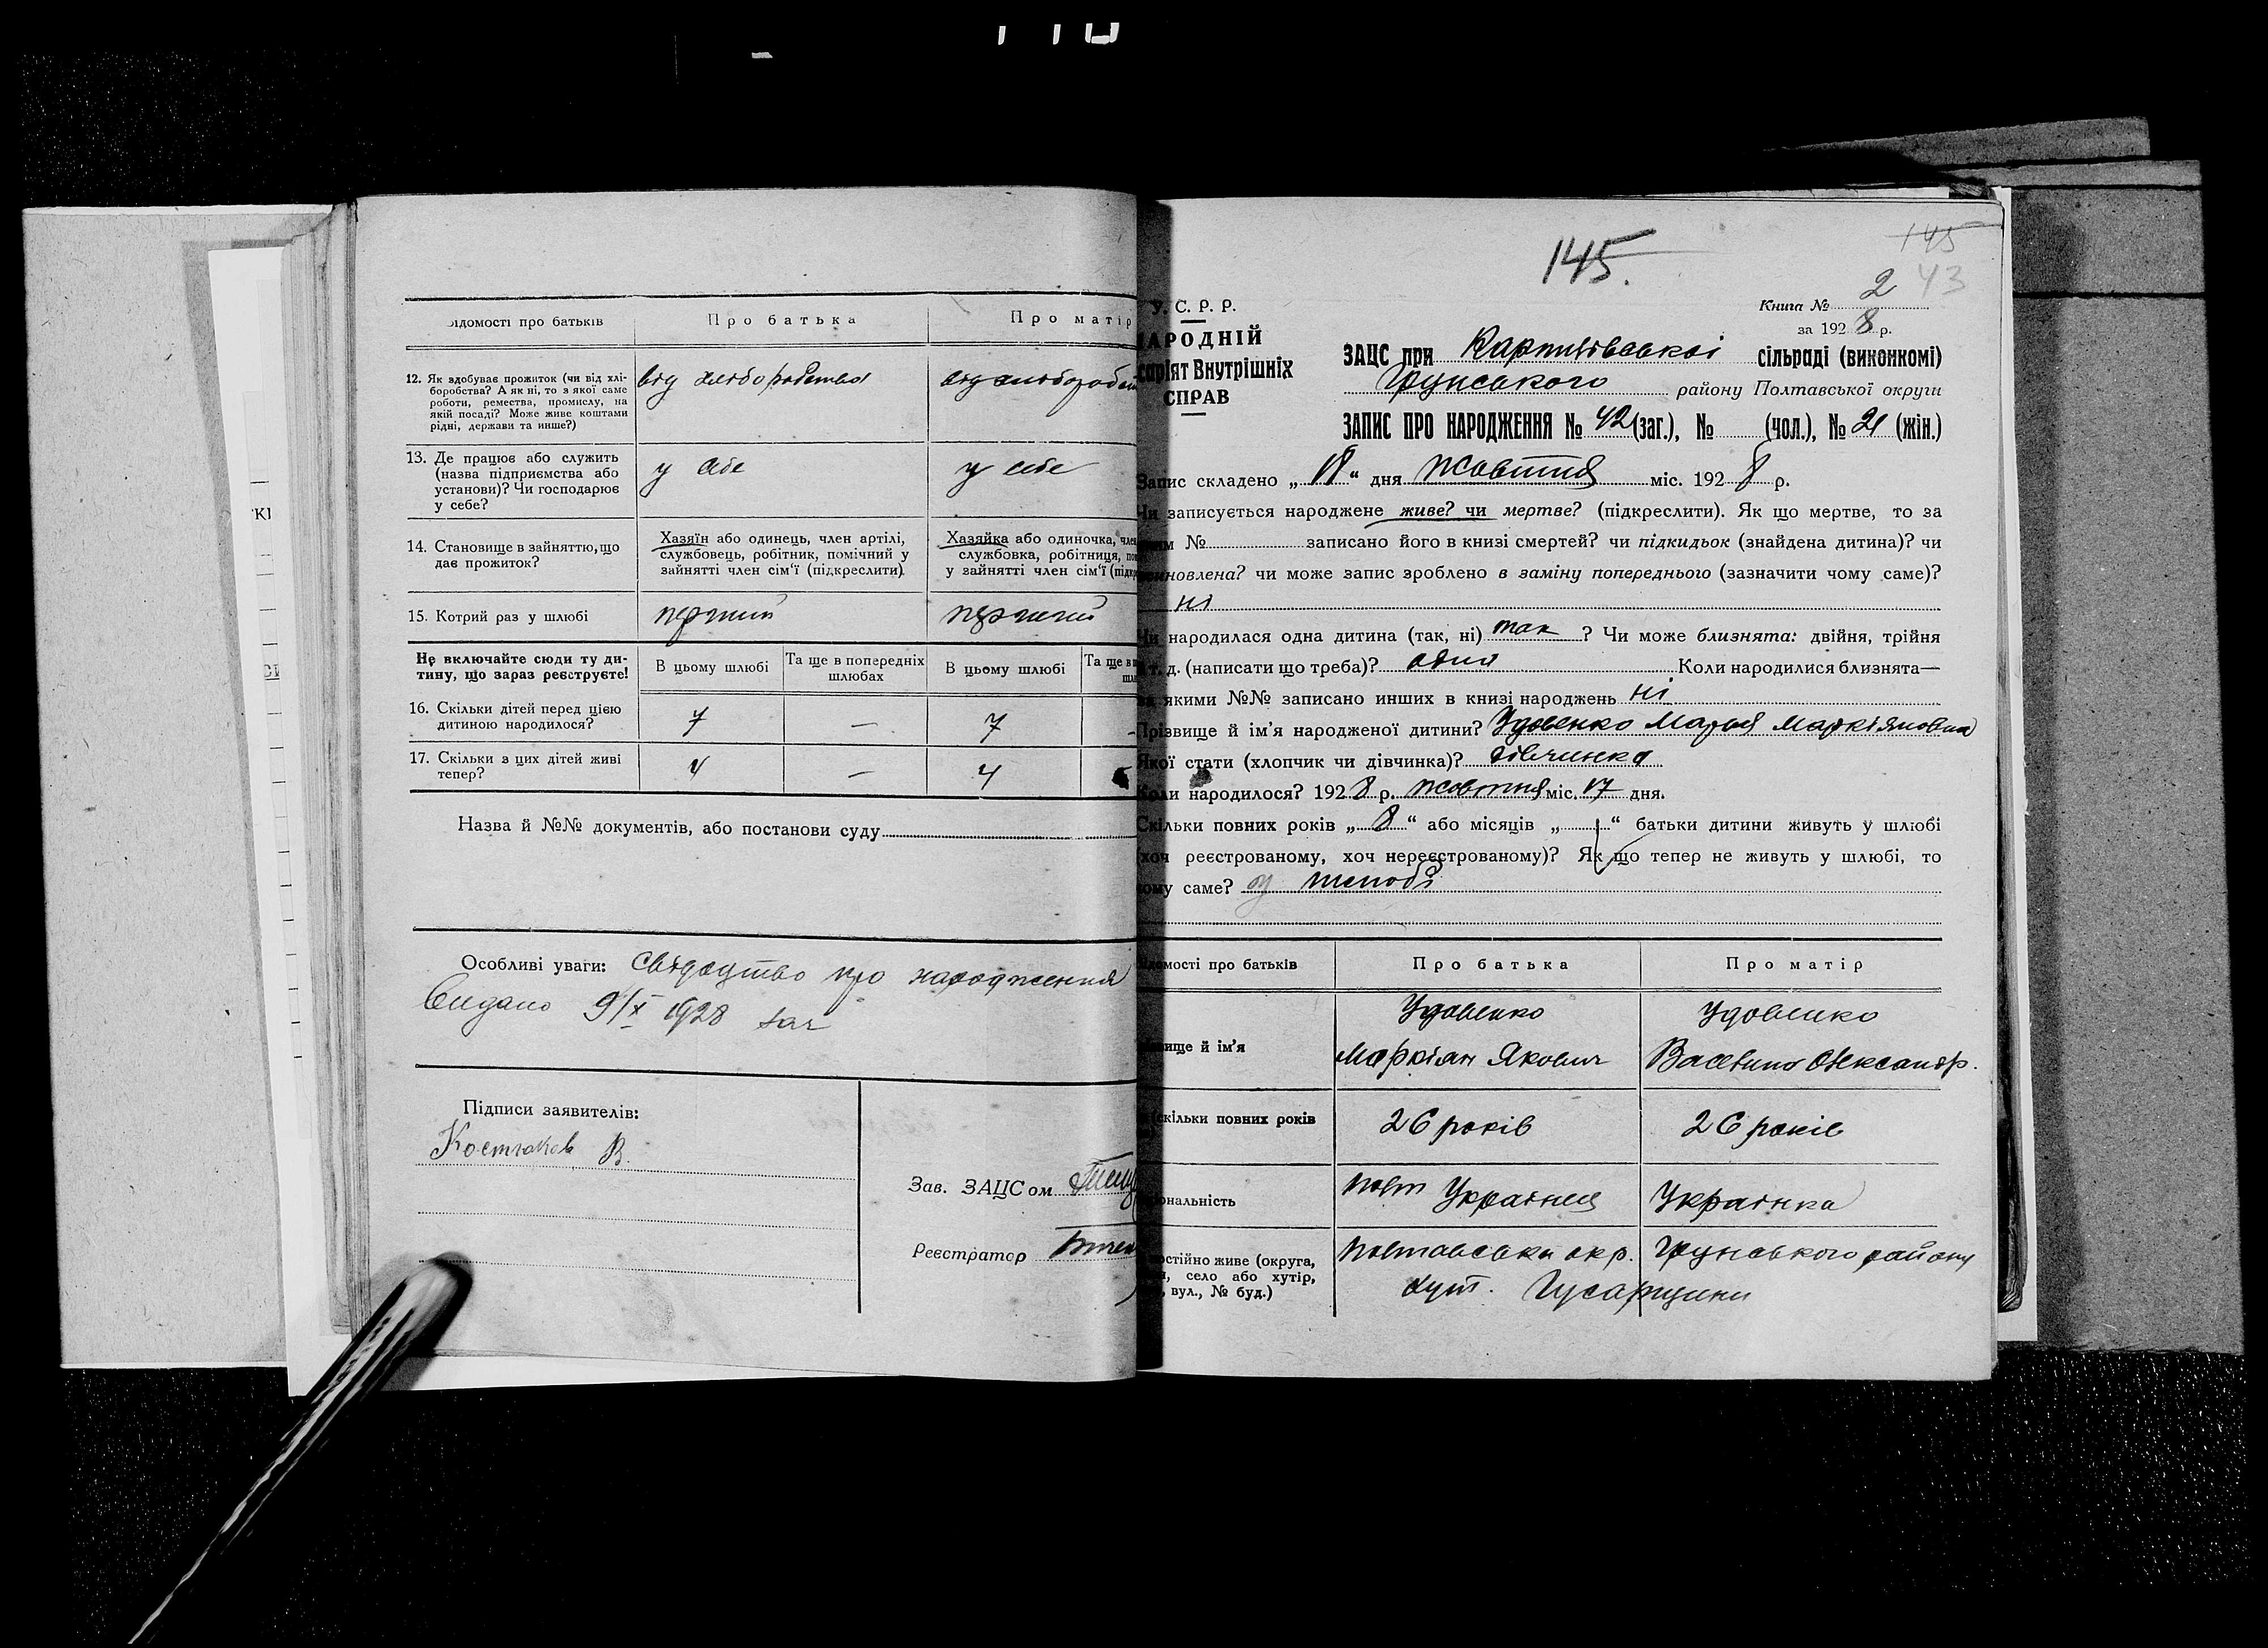 Відомості про батьків
Про батька
Про матір
12. Як здобуває прожиток (чи від хлі-
боробства? А як ні, то з якої саме
роботи, ремества, промислу, на
якій посаді? Може живе коштами
рідні, держави та инше?)
від хліборобства
від хлібороб
13. Де працює або служить
(назва підприємства або
установи)? Чи господарює
у себе?
у себе
у себе
14. Становище в зайняттю, що
дає прожиток?
Хазяїн або одинець, член артілі,
службовець, робітник, помічний у
зайнятті член сім'ї (підкреслити).
Хазяйка або одиночка, член
службовка, робітниця, по
у зайнятті член сім'ї (підк
15. Котрий раз у шлюбі
перший
перший
Не включайте сюди ту ди-
тину, що зараз реєструєте!
В цьому шлюбі
Та ще в попередніх
шлюбах
В цьому шлюбі
Та ще в
16. Скільки дітей перед цією
дитиною народилося?
7 — 7
17. Скільки з цих дітей живі
тепер?
4 — 4
Назва й №№ документів, або постанови суду
Особливі уваги: Свідоцтво про народження
Видано 9/X 1928
Підписи заявителів:
В.
Зав. ЗАЦСом
Реєстратор
145.
145
43
У. С. Р. Р.
АРОДНІЙ
саріят Внутрішніх
СПРАВ
Книга № 2
за 1928 р.
ЗАЦС при сільраді (виконкомі)
Грунського району Полтавської округи
ЗАПИС ПРО НАРОДЖЕННЯ № 42 (заг.), № (чол.), № 21 (жін.)
Запис складено „18“ дня жовтня міс. 1928 р.
Чи записується народжене живе? чи мертве? (підкреслити). Як що мертве, то за
яким № записано його в книзі смертей? чи підкидьок (знайдена дитина)? чи
всиновлена? чи може запис зроблено в заміну попереднього (зазначити чому саме)?
ні
Чи народилася одна дитина (так, ні) так ? Чи може близнята: двійня, трійня
і т. д. (написати що треба)? одна Коли народилися близнята—
за якими №№ записано инших в книзі народжень ні
Прізвище й ім'я народженої дитини? Удовенко Марія Маркіяновна
Якої стати (хлопчик чи дівчинка)? дівчинка
Коли народилося? 1928 р. жовтня міс. 17 дня.
Скільки повних років „8“ або місяців „ “ батьки дитини живуть у шлюбі
(хоч реєстрованому, хоч нереєстрованому)? Як що тепер не живуть у шлюбі, то
чому саме? у шлюбі
Відомості про батьків
Про батька
Про матір
Прізвище й ім'я
Удовенко
Маркіян Якович
Удовенко
Олександр.
скільки повних років
26 років
26 років
Національність
Українец
Українка
постійно живе (округа,
село або хутір,
вул., № буд.)
Полтавська окр. Грунського району
хут. Гусарщини